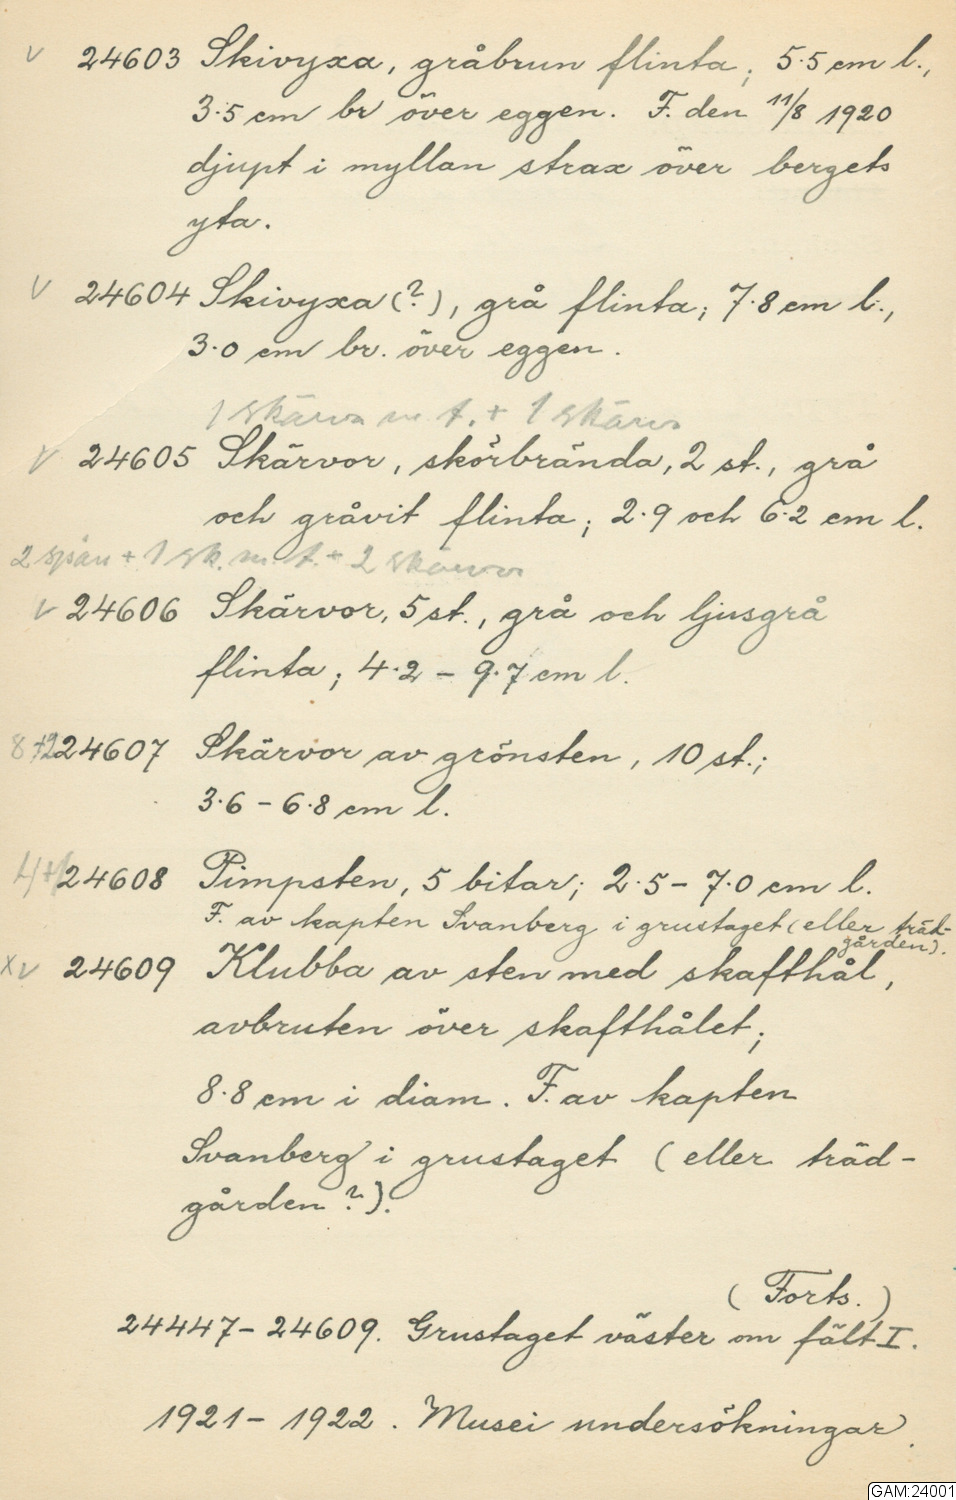 v 24603 Skivyxa, gråbrun flinta; 5.5 cm l.,
3.5 cm br över eggen. F. den 11/8 1920
djupt i myllan strax över bergets
yta.
v 24604 Skivyxa (?), grå flinta; 7.8 cm l.,
3.0 cm br. över eggen.
1 skärva m t. + 1 skärva
v 24605 Skärvor, skörbrända, 2 st., grå
och gråvit flinta; 2.9 och 6.2 cm l.
2 spån + 1 sk. m. t. + 2 skärvor
v 24606 Skärvor, 5 st., grå och ljusgrå
flinta; 4.2 – 9.7 cm l.
8+2 24607 Skärvor av grönsten, 10 st.;
3.6 – 6.8 cm l.
4+1 24608 Pimpsten, 5 bitar; 2.5 – 7.0 cm l.
F. av kapten Svanberg i grustaget (eller träd-
gården).
x v 24609 Klubba av sten med skafthål,
avbruten över skafthålet;
8.8 cm i diam. F. av kapten
Svanberg i grustaget (eller träd-
gården ?).
(Forts.)
24447 – 24609. Grustaget väster om fält I.
1921 – 1922. Musei undersökningar.
GAM:24001